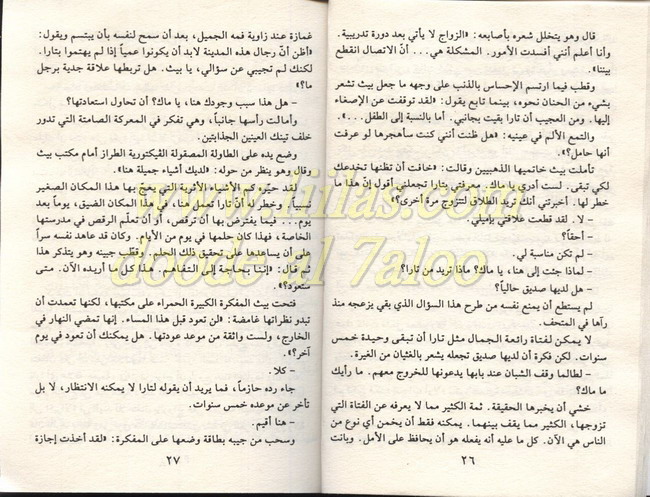 قال وهو يتخلل شعره بأصابعه: «الزواج لا يأتي بعد دورة تدريبية.
وأنا أعلم أنني أفسدت الأمور. المشكلة هي... أنّ الاتصال انقطع
بيننا».
وقطب فيما ارتسم الإحساس بالذنب على وجهه ما جعل بيث تشعر
بشيء من الحنان نحوه، بينما تابع يقول: «لقد توقفت عن الإصغاء
إليها. ومن العجيب أن تارا بقيت بجانبي. أما بالنسبة إلى الطفل...».
والتمع الألم في عينيه: «هل ظنت أنني كنت سأهجرها لو عرفت
أنها حامل؟».
تأملت بيث خاتميها الذهبيين وقالت: «خافت أن تظنها تخدعك
لكي تبقى. لست أدري يا ماك. معرفتي بتارا تجعلني أقول إنّ هذا ما
خطر لها. أخبرتني أنك تريد الطلاق لتتزوج مرة أخرى؟»
- لا. لقد قطعت علاقتي بإميلي.
- أحقاً؟
- لم تكن مناسبة لي.
- لماذا جئت إلى هنا، يا ماك؟ ماذا تريد من تارا؟
- هل لديها صديق حالياً؟
لم يستطع أن يمنع نفسه من طرح هذا السؤال الذي بقي يزعجه منذ
رآها في المتحف.
لا يمكن لفتاة رائعة الجمال مثل تارا أن تبقى وحيدة خمس
سنوات. لكن فكرة أن لديها صديق تجعله يشعر بالغثيان من الغيرة.
- لطالما وقف الشبان عند بابها يدعونها للخروج معهم. ما رأيك
ما ماك؟
خشي أن يخبرها الحقيقة. ثمة الكثير مما لا يعرفه عن الفتاة التي
تزوجها، الكثير مما يقف بينهما. يمكنه فقط أن يخمن أي نوع من
الناس هي الآن. كل ما عليه أنه يفعله هو أن يحافظ على الأمل. وبانت
٢٦
غمازة عند زاوية فمه الجميل، بعد أن سمح لنفسه بأن يبتسم ويقول:
«أظن أنّ رجال هذه المدينة لابد أن يكونوا عمياً إذا لم يهتموا بتارا.
لكنك لم تجيبي عن سؤالي، يا بيث. هل تربطها علاقة جدية برجل
ما؟»
- هل هذا سبب وجودك هنا، يا ماك؟ أن تحاول استعادتها؟
وأمالت رأسها جانباً، وهي تفكر في المعركة الصامتة التي تدور
خلف تينك العينين الجذابتين.
وضع يده على الطاولة المصقولة الڤيكتورية الطراز أمام مكتب بيث
وقال وهو ينظر من حوله: «لديك أشياء جميلة هنا».
لقد حيّرته كثرة الأشياء الأثرية التي يعجّ بها هذا المكان الصغير
نسبياً. وخطر له أنّ تارا تعمل هنا، في هذا المكان الضيق، يوماً بعد
يوم... فيما يفترض بها أن ترقص، أو أن تعلّم الرقص في مدرستها
الخاصة، فهذا كان حلمها في يوم من الأيام. وكان قد عاهد نفسه سراً
على أن يساعدها على تحقيق ذلك الحلم. وقطب جبينه وهو يتذكر هذا
ثم قال: «إننا بحاجة إلى التفاهم. هذا كل ما أريده الآن. متى
ستعود؟».
فتحت بيث المفكرة الكبيرة الحمراء على مكتبها، لكنها تعمدت أن
تبدو نظراتها غامضة: «لن تعود قبل هذا المساء. إنها تمضي النهار في
الخارج، ولست واثقة من موعد عودتها. هل يمكنك أن تعود في يوم
آخر؟».
- كلا.
جاء رده حازماً، فما يريد أن يقوله لتارا لا يمكنه الانتظار، بل
تأخر عن موعده خمس سنوات.
- هنا أقيم.
وسحب من جيبه بطاقة وضعها على المفكرة: «لقد أخذت إجازة
٢٧
www.liilas.com
doode al 7aloo